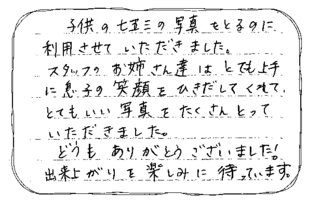 子供の七五三の写真をとるのに
利用させていただきました。
スタッフのお姉さん達はとても上手
に息子の笑顔をひきだしてくれて、
とてもいい写真をたくさんとって
いただきました。
どうもありがとうございました!
出来上がりを楽しみに待っています。